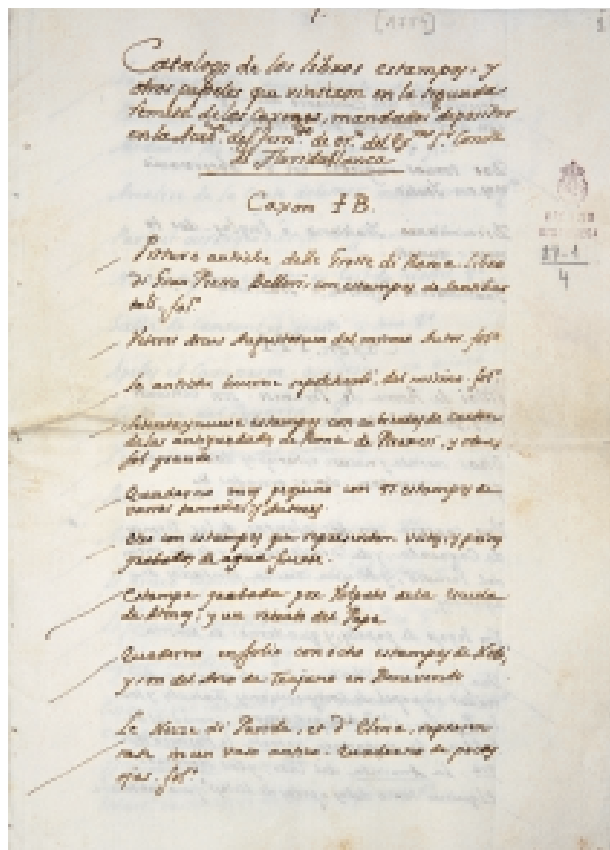 1.
[1784]
1
Catalogo de los libros estampas, y
otros papeles que vinieron en la segunda
remesa de los caxones, mandados depositar
en la Acad.ª del de orn. del Ex.mo S.r Conde
de Floridablanca
Caxon I B.
27-1
4
Pitture antiche delle Grotte di Roma. Libro
di Gian Pietro Bellori, con estampas de Santos Bar
toli. fol.º
Veteres Arcus Augustorum del mismo Autor. fol.º
Le antiche lucerne sepolchrali, del mismo. fol.º
Setenta y nueve estampas con cubiertas de carton
de las antiguedades de Roma de Piranesi, y otros,
fol. grande
Quaderno muy pequeño con estampas de
varios tamaños y autores
Otro con estampas que representan vistas, y paises
grabados de agua fuerte.
Estampa grabada por Volpato de la Escuela
de Atenas, y un retrato del Papa
Quaderno en folio con ocho estampas de
y son del Arco de Trajano en Benevento
Le Nozze di Paride, et d' Elena, represen
tate in un vaso antico. Quaderno de pocas
ojas. fol.º